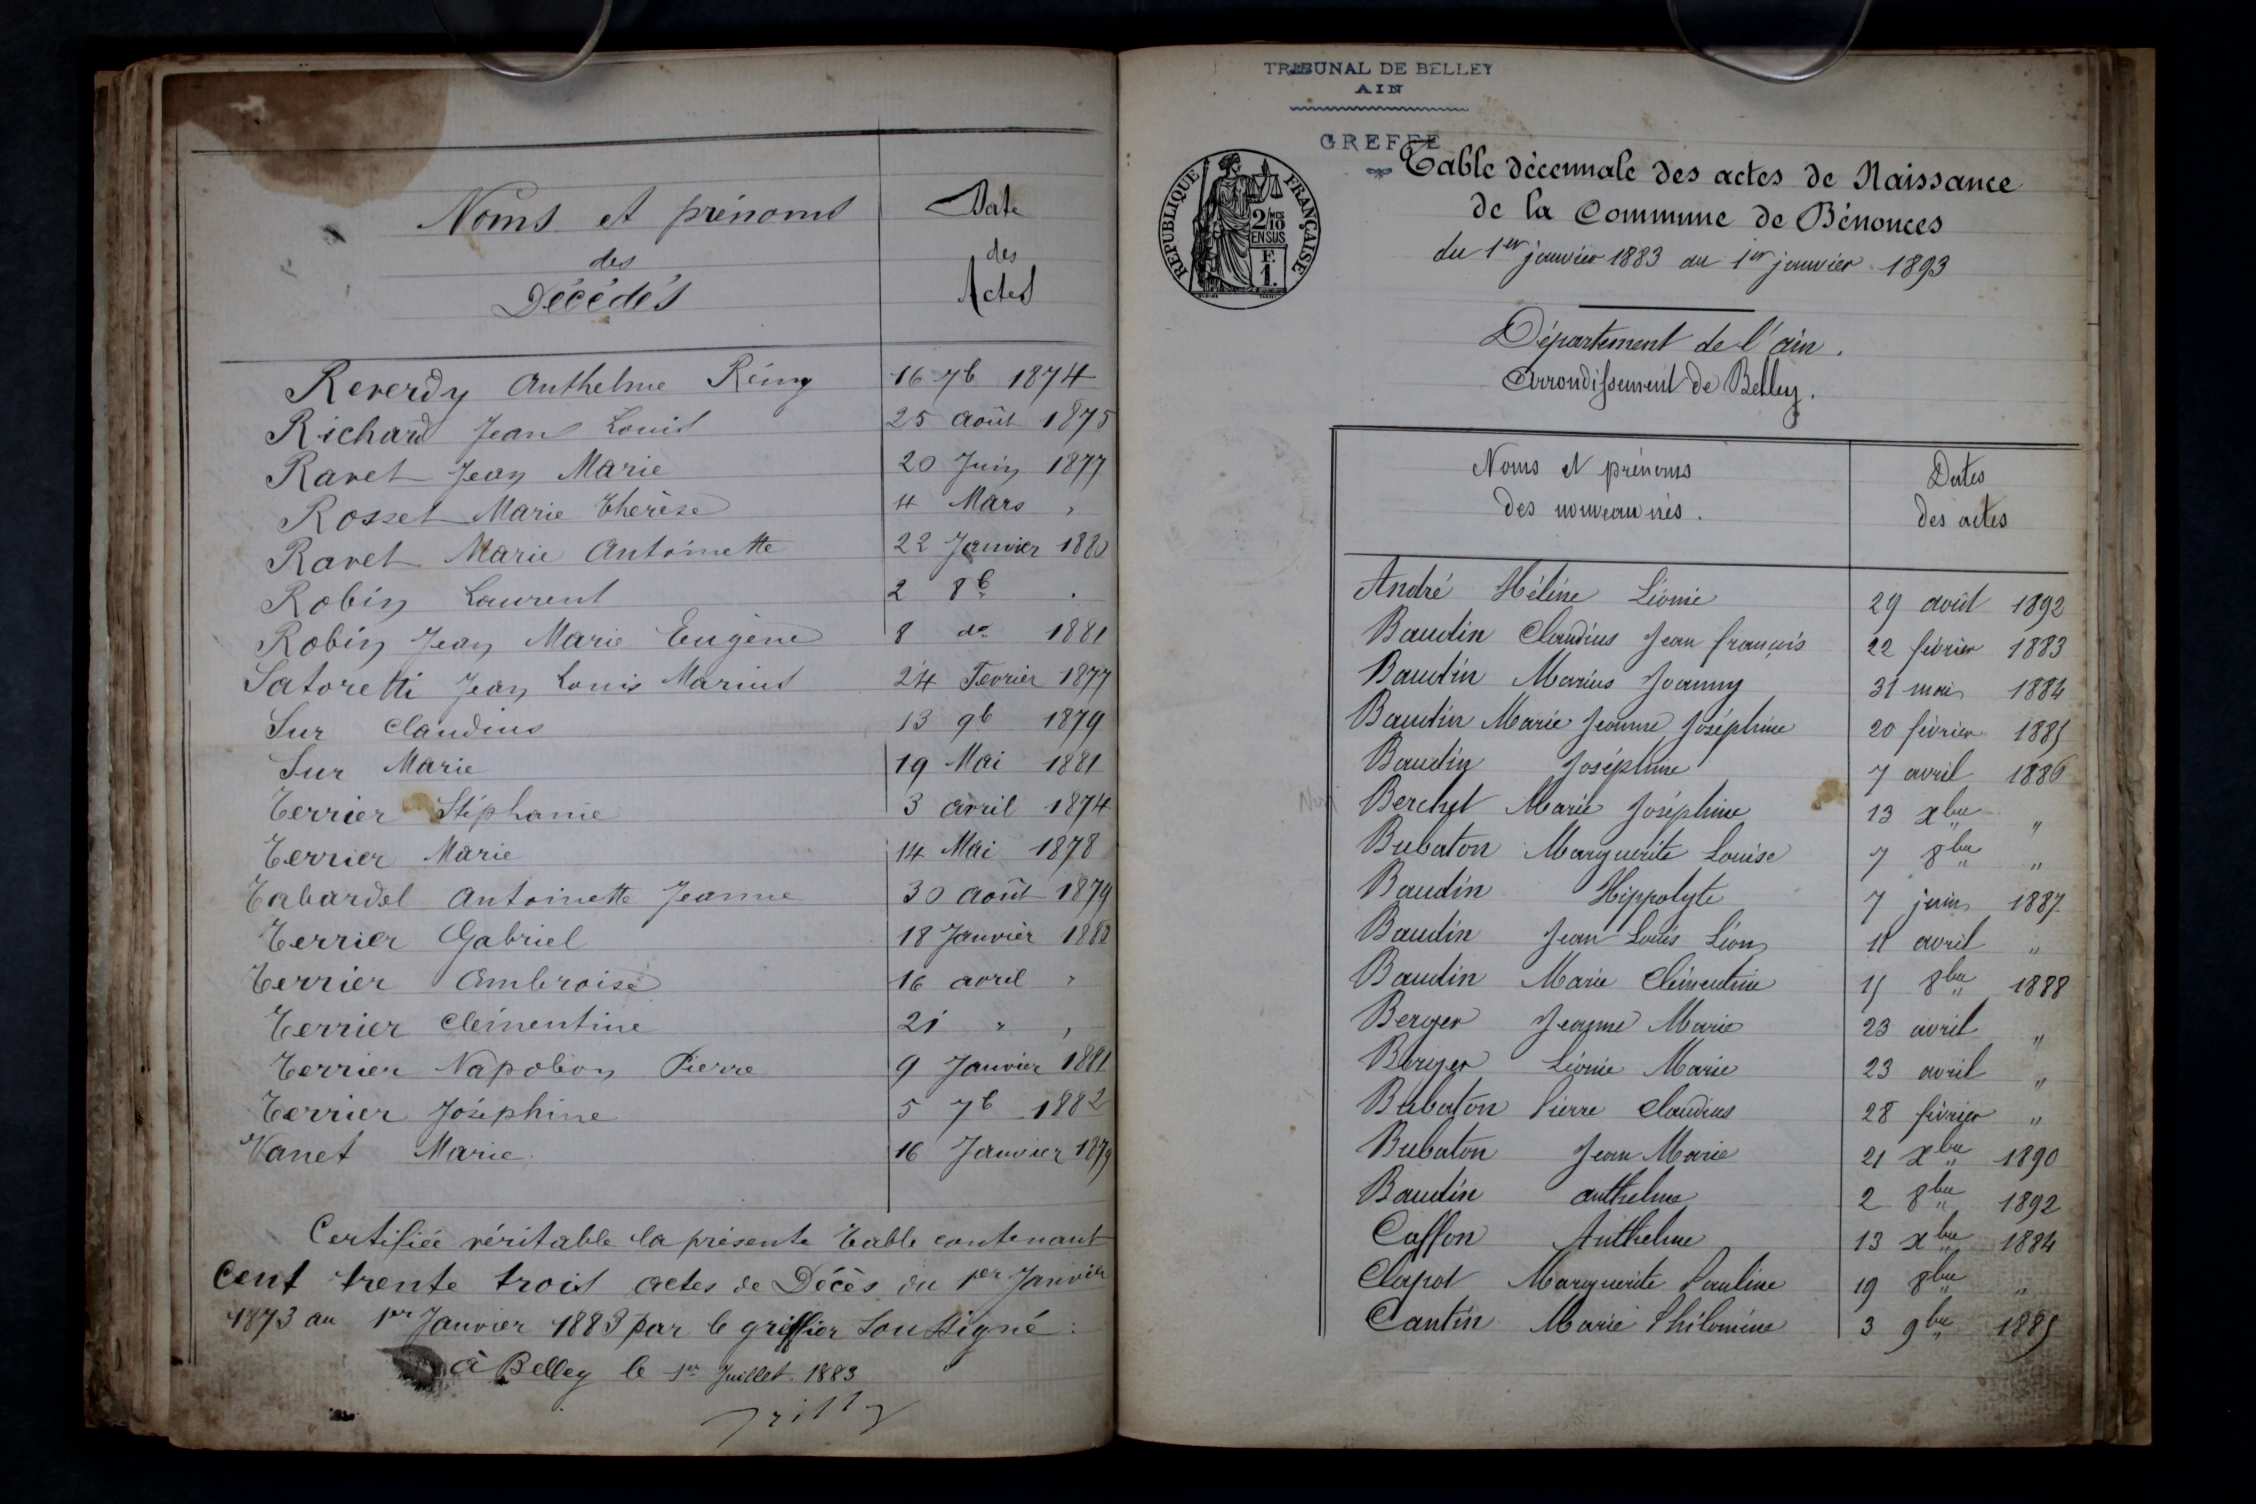 Noms et prénoms
des
Décédés
Date
des
Actes
Reverdy Anthelme Rémy 16 7b 1874
Richard Jean Louis 25 Août 1875
Ravet Jean Marie 20 Juin 1877
Rosset Marie Thérèse 4 Mars "
Ravet Marie Antoinette 22 Janvier 1880
Robin Laurent 2 8b "
Robin Jean Marie Eugène 8 do 1881
Satoretti Jean Louis Marius 24 Fevrier 1877
Sur Claudius 13 9b 1879
Sur Marie 19 Mai 1881
Terrier Stéphanie 3 avril 1874
Terrier Marie 14 Mai 1878
Tabardel Antoinette Jeanne 30 Août 1879
Terrier Gabriel 18 Janvier
Terrier Ambroise 16 avril "
Terrier Clémentine 21 " "
Terrier Napoléon Pierre 9 Janvier 1881
Terrier Joséphine 5 7b 1882
Vanet Marie 16 Janvier 1879
Certifiée véritable la présente Table contenant
Cent trente trois actes de Décès du 1er Janvier
1873 au 1er Janvier 1883 par le greffier soussigné :
à Belley le 1er Juillet 1883
TRIBUNAL DE BELLEY
AIN
GREFFE
RÉPUBLIQUE FRANÇAISE
2/10MES
EN SUS
F.
1.
Table décennale des actes de Naissance
de la Commune de Bénonces
du 1er janvier 1883 au 1er janvier 1893
Département de l'ain.
Arrondissement de Belley.
Noms et prénoms
des nouveau nés.
Dates
des actes
André Héléne Léonie 29 août 1892
Baudin Claudius Jean françois 22 février 1883
Baudin Marius Joanny 31 mai 1884
Baudin Marie Jeanne Joséphine 20 février 1885
Baudin Joséphine 7 avril 1886
Berchet Marie Joséphine 13 xbre "
Bubaton Marguerite Louise 7 8bre "
Baudin Hippolyte 7 juin 1887
Baudin Jean Louis Léon 11 avril "
Baudin Marie Clémentine 15 8bre 1888
Berger Jeanne Marie 23 avril "
Berger Léonie Marie 23 avril "
Bubaton Pierre Claudius 28 février "
Bubaton Jean Marie 21 xbre 1890
Baudin anthelme 2 8bre 1892
Caffon Anthelme 13 xbre 1884
Clapot Marguerite Pauline 19 8bre "
Cantin Marie Philomène 3 9bre 1885